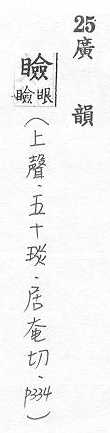 25 廣韻
瞼 眼瞼 (上聲·五十琰·居奄切·P334)